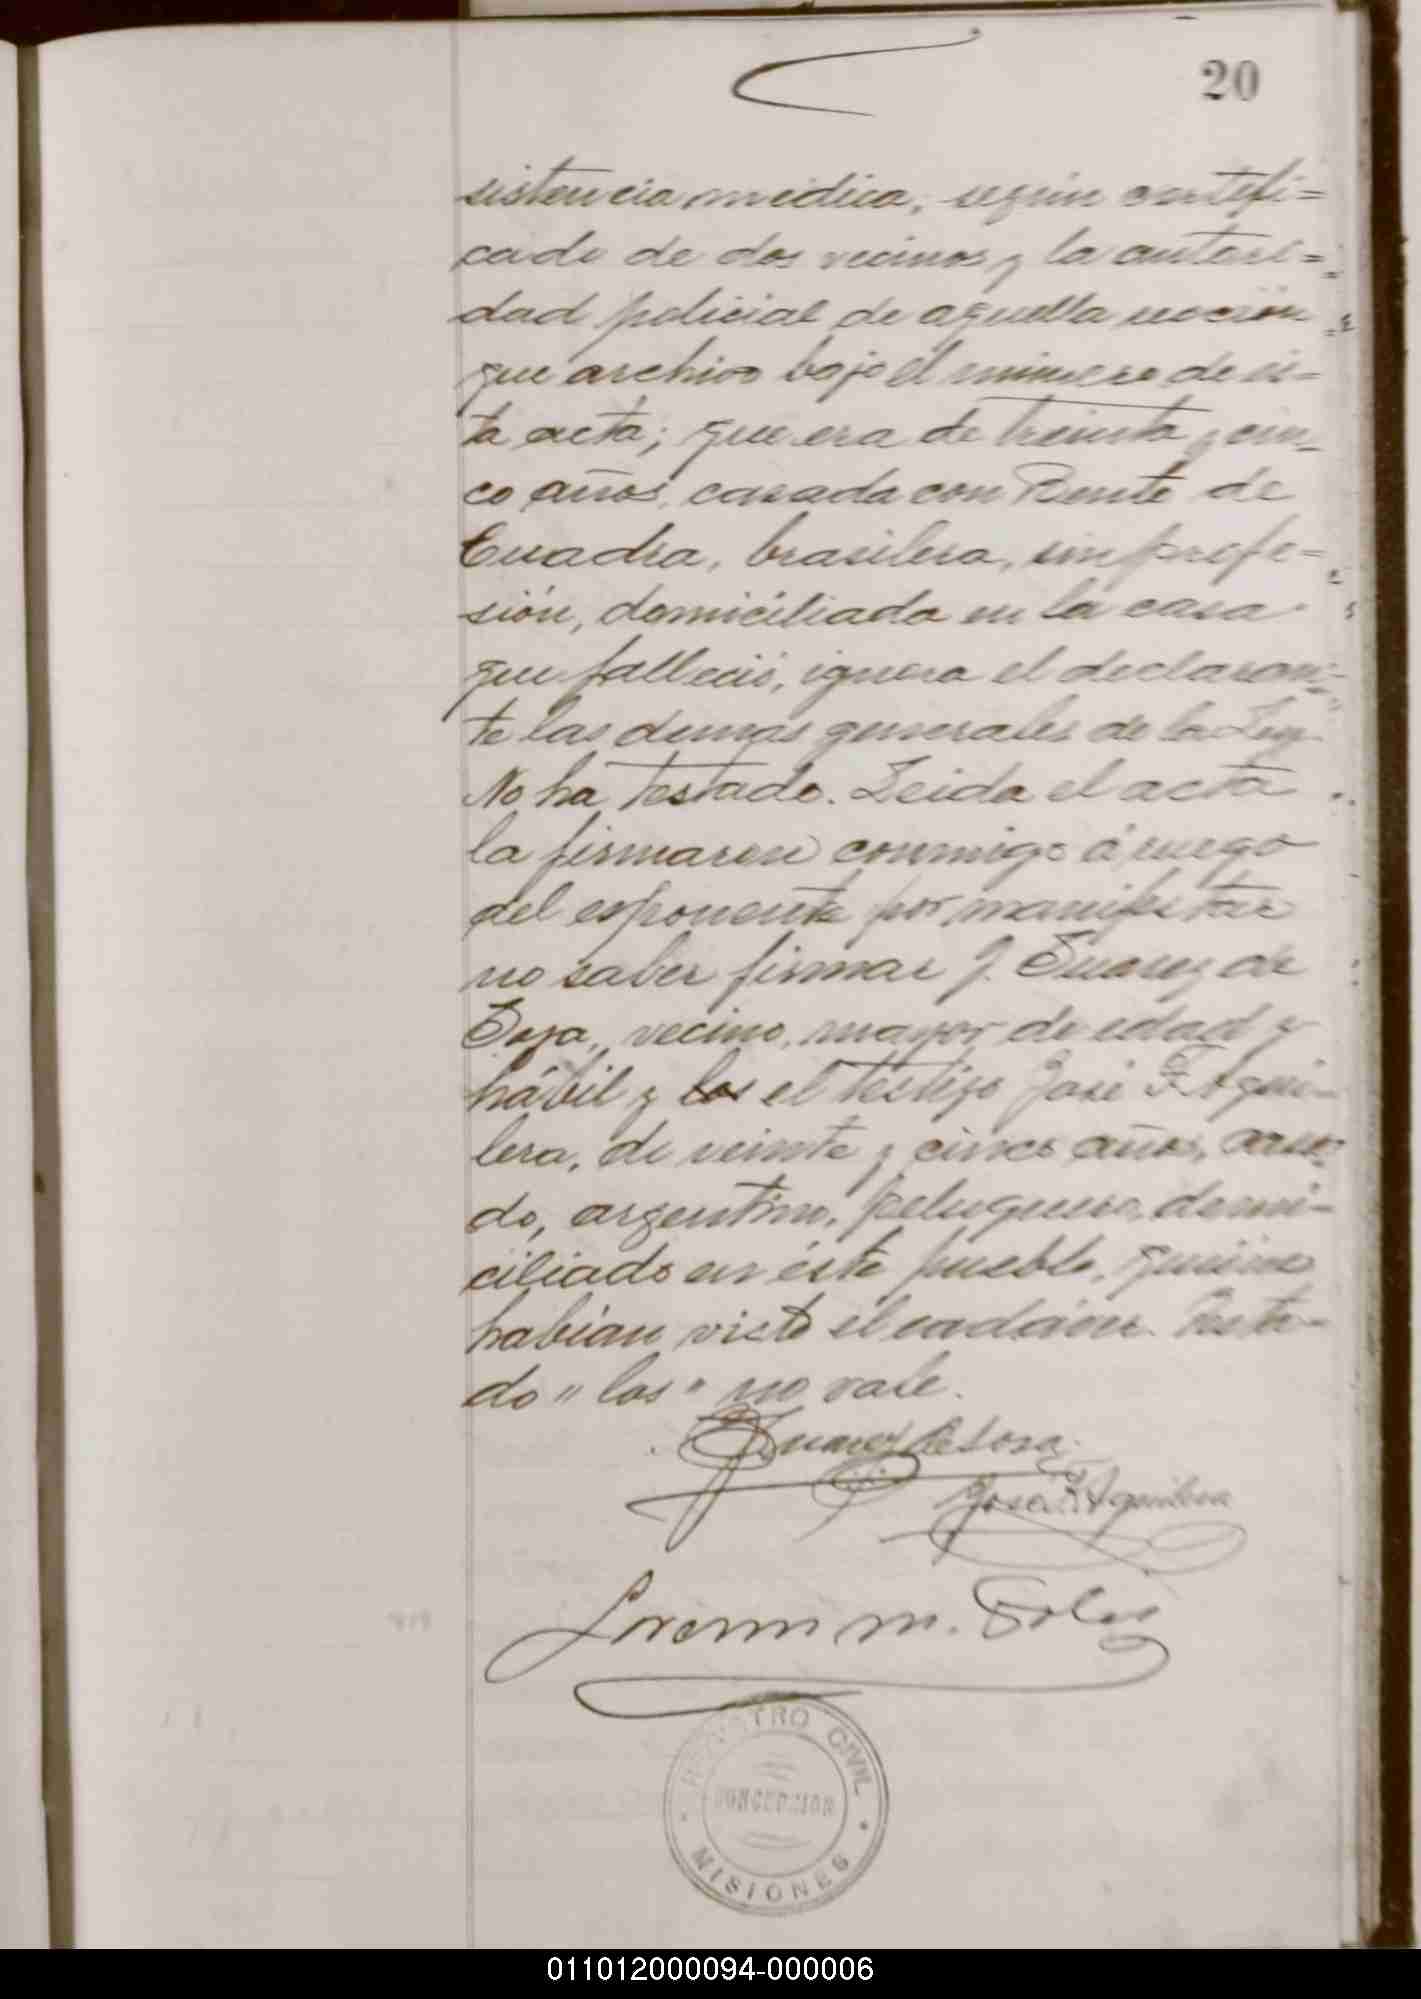 20
sistencia médica, según certifi=
cado de dos vecinos y la autori=
dad policial de aquella sección
que archivo bajo el número de es=
ta acta; que era de treinta y cin=
co años, casada con Bente de
Cuadra, brasilera, sin profe=
sión, domiciliada en la casa
que falleció, ignora el declaran=
te las demas generales de la Ley.
No ha testado. Leida el acta
la firmaron conmigo á ruego
del esponente por manifestar
no saber firmar J. Suarez de
Sosa, vecino, mayor de edad y
hábil y los el testigo José F. Agui-
lera, de veinte y cinco años, casa-
do, argentino, peluquero, domi-
ciliado en éste pueblo, quienes
habían visto el cadáver. Testa-
do "los" no vale.
J Suarez de Sosa
José F. Aguilera
M. Solis
REGISTRO CIVIL
CONCEPCION
MISIONES
011012000094-000006